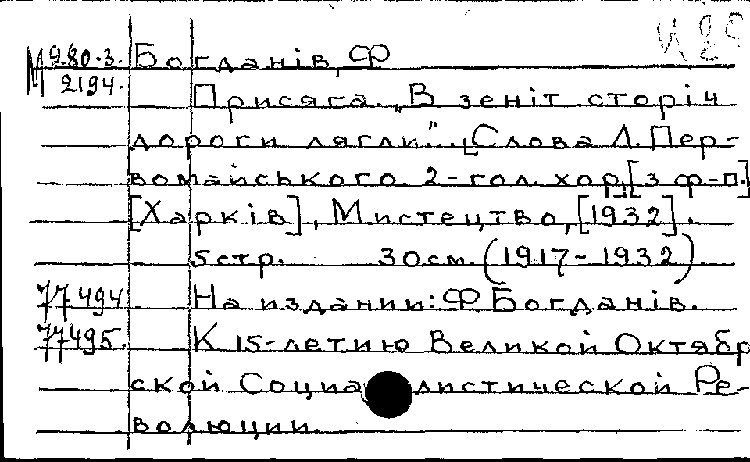 М 9.80-3. Богданів, Ф
2194. Присяга. „В зеніт сторіч
дороги лягли". [Слова Л. Пер-
вомайського. 2-гол. хор] [з ф-п.]
[Харків], Мистецтво, [1932].
5стр. 30см. (1917-1932).
77494. На издании: Ф Богданів.
77495. К 15-летию Великой Октябр
ской Социалистической Ре-
волюции.